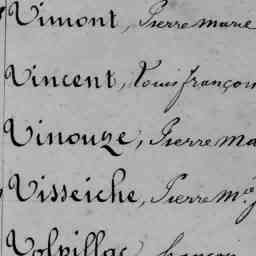 Vimont, Pierre marie
Vincent, Louis françois
Vinouze, Pierre Ma
Visseiche, Pierre M.ie J
Volpillac, françois